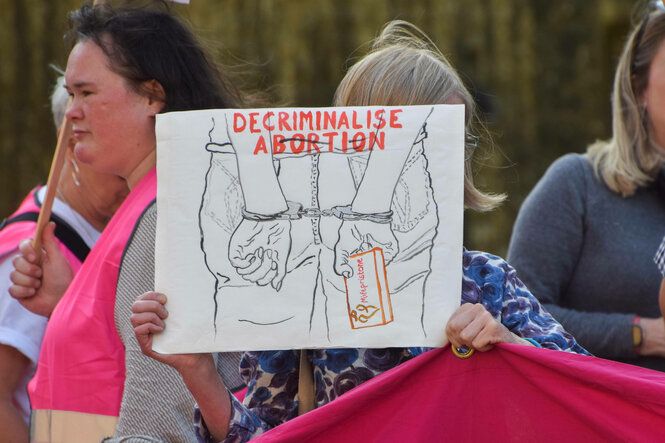 DECRIMINALISE
ABORTION
Mifepristone